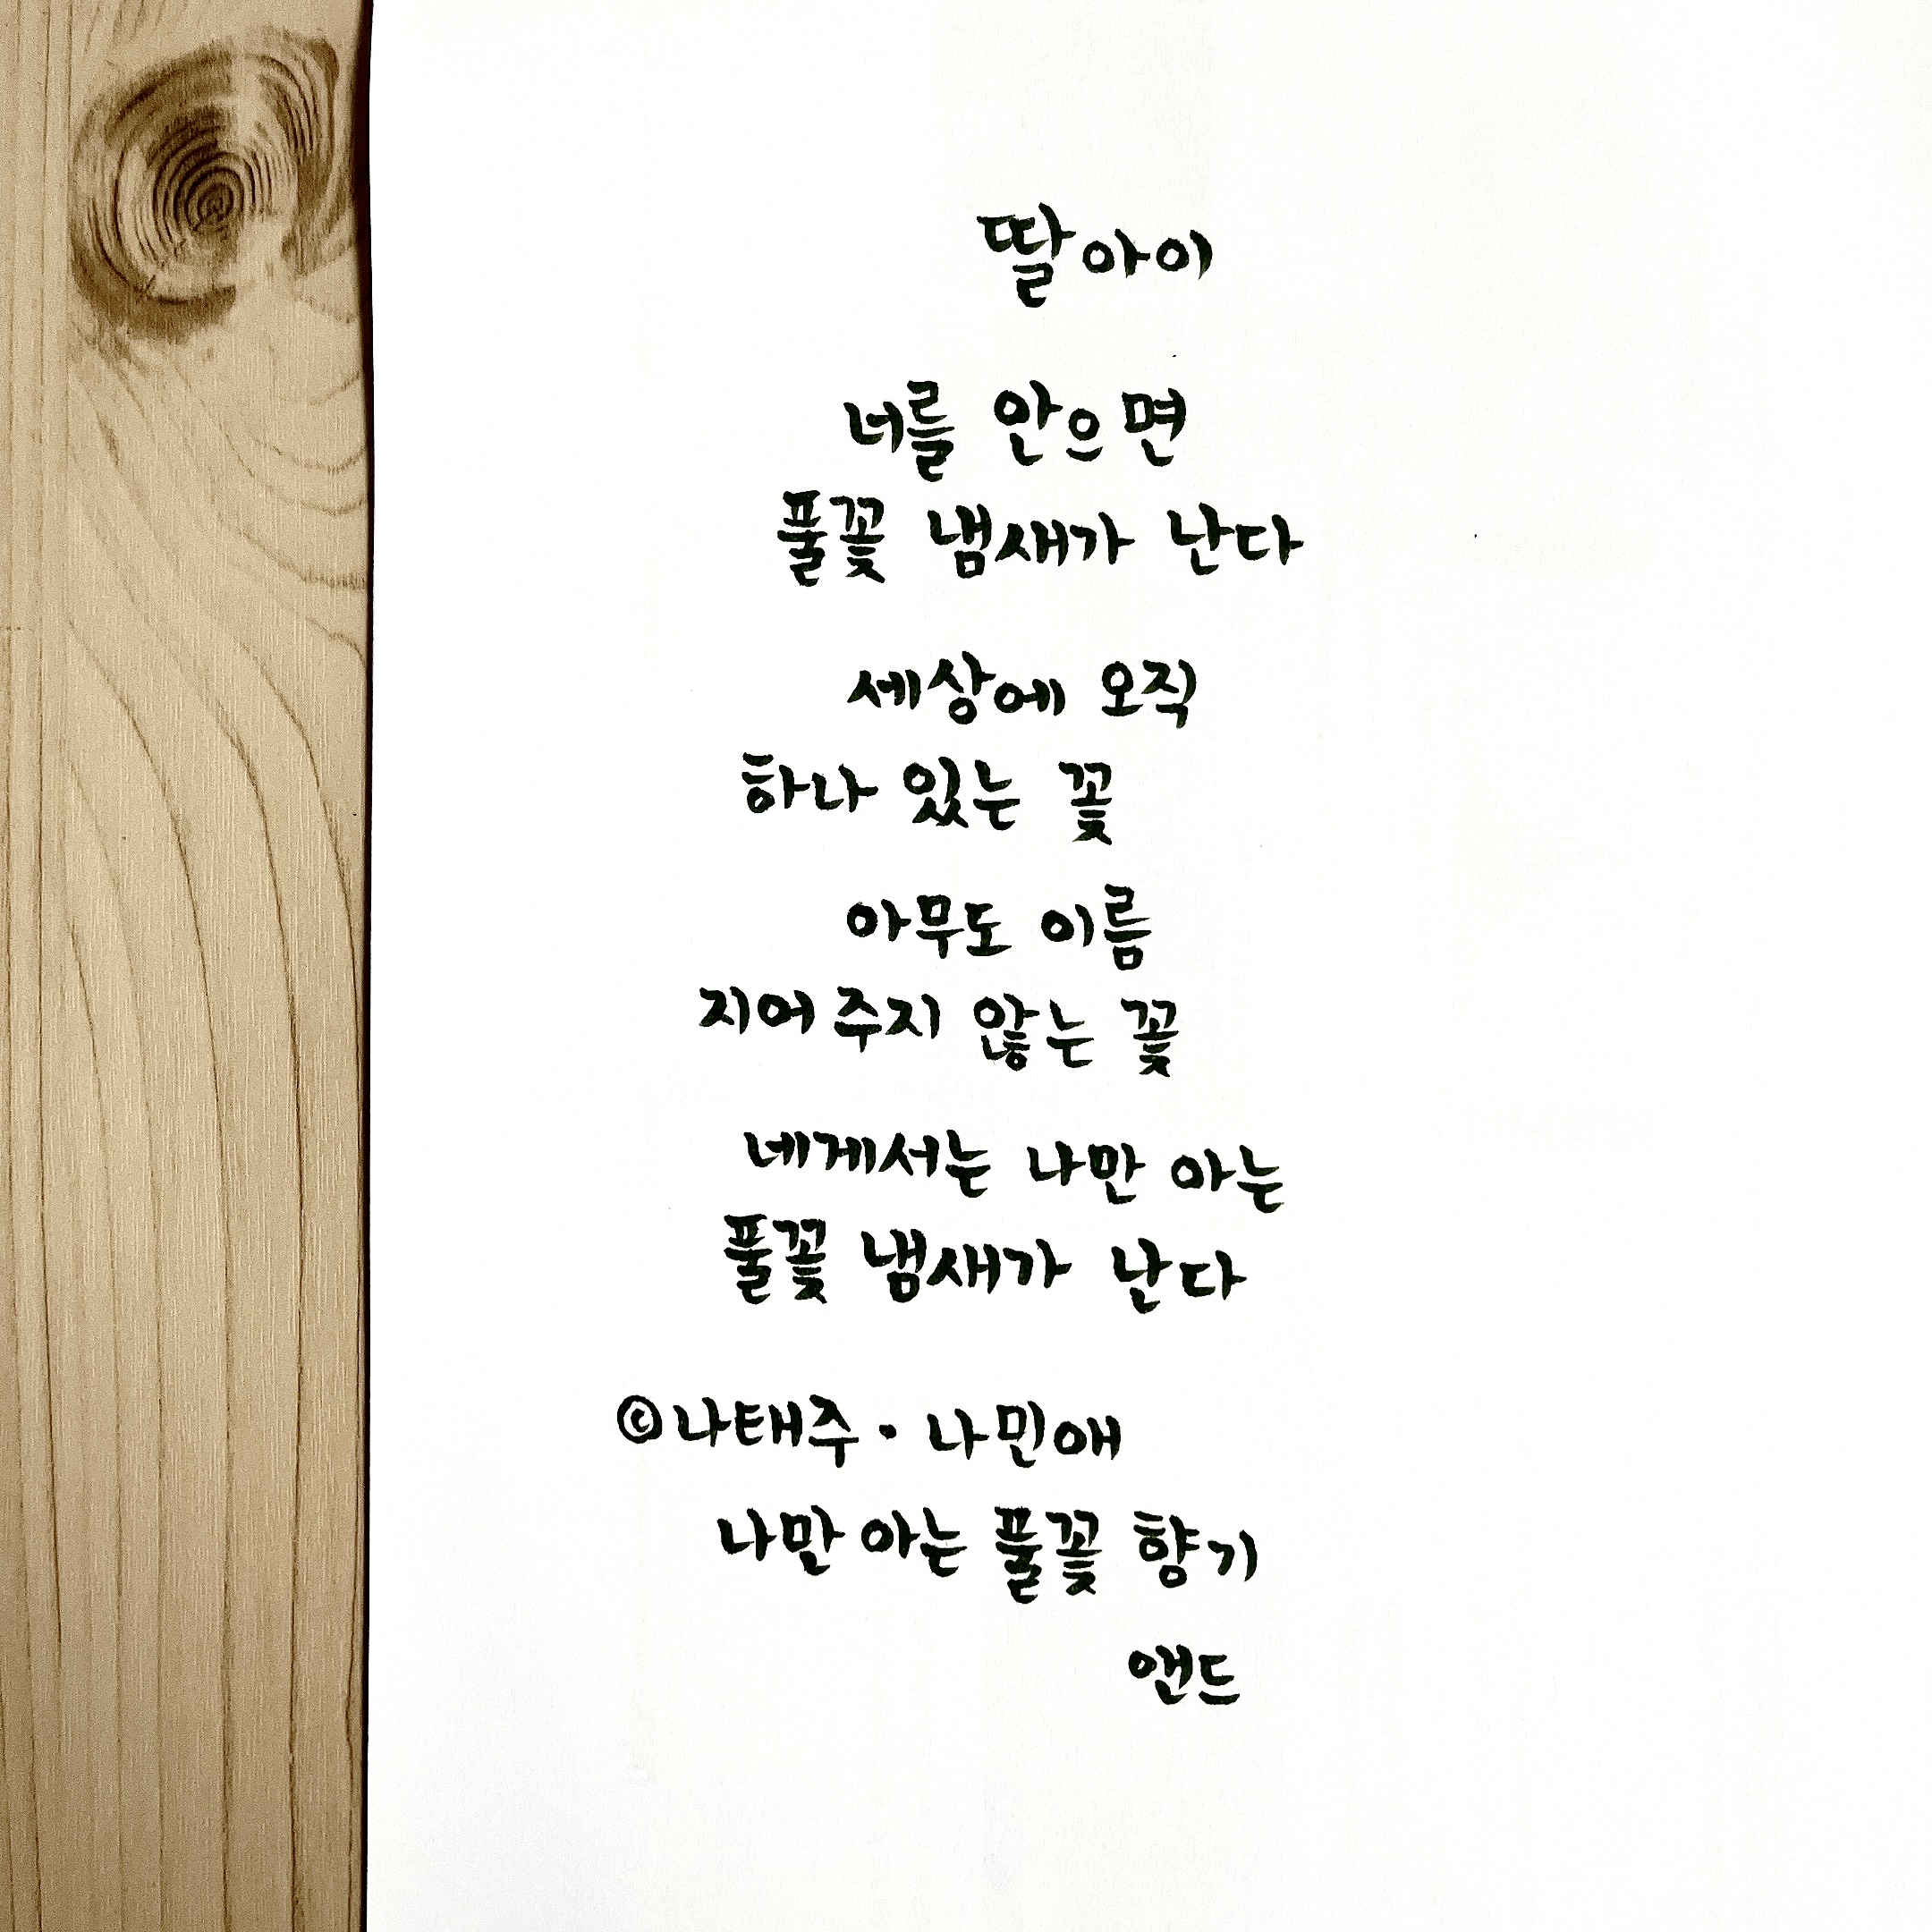 딸아이
너를 안으면
풀꽃 냄새가 난다
세상에 오직
하나 있는 꽃
아무도 이름
지어 주지 않는 꽃
네게서는 나만 아는
풀꽃 냄새가 난다
©나태주·나민애
나만 아는 풀꽃 향기
앤드